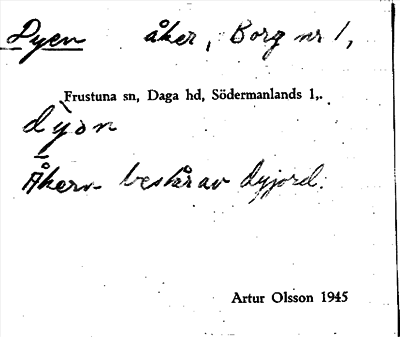 Dyen åker, Borg nr 1,
Frustuna sn, Daga hd, Södermanlands l,.
dỳən
Åkern består av dyjord.
Artur Olsson 1945